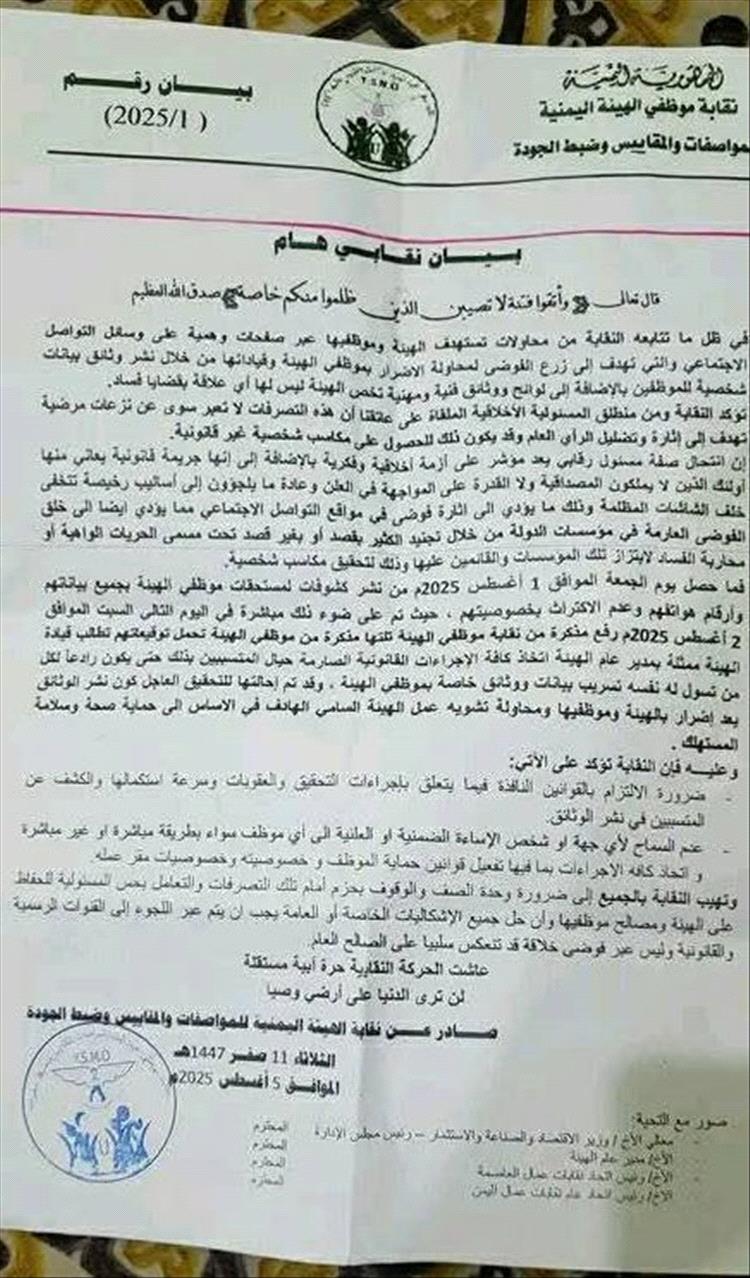 الجمهورية اليمنية
نقابة موظفي الهيئة اليمنية
للمواصفات والمقاييس وضبط الجودة
Y.S.M.O
بيان رقم
(2025/1 )
بيان نقابي هام
قال تعالى ﴿ وأتقوا فتنة لا تصيبن الذين ظلموا منكم خاصة ﴾ صدق الله العظيم
في ظل ما تتابعه النقابة من محاولات تستهدف الهيئة وموظفيها عبر صفحات وهمية على وسائل التواصل
الاجتماعي والتي تهدف إلى زرع الفوضى لمحاولة الاضرار بموظفي الهيئة وقياداتها من خلال نشر وثائق بيانات
شخصية للموظفين بالإضافة إلى لوائح ووثائق فنية ومهنية تخص الهيئة ليس لها أي علاقة بقضايا فساد.
تؤكد النقابة ومن منطلق المسئولية الأخلاقية الملقاة على عاتقنا أن هذه التصرفات لا تعبر سوى عن نزعات مرضية
تهدف إلى إثارة وتضليل الرأي العام وقد يكون ذلك للحصول على مكاسب شخصية غير قانونية.
إن انتحال صفة مسئول رقابي يعد مؤشر على أزمة أخلاقية وفكرية بالإضافة إلى إنها جريمة قانونية يعاني منها
أولئك الذين لا يملكون المصداقية ولا القدرة على المواجهة في العلن وعادة ما يلجؤون إلى أساليب رخيصة تتخفى
خلف الشاشات المظلمة وذلك ما يؤدي الى اثارة فوضى في مواقع التواصل الاجتماعي مما يؤدي ايضا الى خلق
الفوضى العارمة في مؤسسات الدولة من خلال تجنيد الكثير بقصد أو بغير قصد تحت مسمى الحريات الواهية أو
محاربة الفساد لابتزاز تلك المؤسسات والقائمين عليها وذلك لتحقيق مكاسب شخصية.
فما حصل يوم الجمعة الموافق 1 أغسطس 2025م من نشر كشوفات لمستحقات موظفي الهيئة بجميع بياناتهم
وأرقام هواتفهم وعدم الاكتراث بخصوصيتهم ، حيث تم على ضوء ذلك مباشرة في اليوم التالي السبت الموافق
2 أغسطس 2025م رفع مذكرة من نقابة موظفي الهيئة تلتها مذكرة من موظفي الهيئة تحمل توقيعاتهم تطالب قيادة
الهيئة ممثلة بمدير عام الهيئة اتخاذ كافة الإجراءات القانونية الصارمة حيال المتسببين بذلك حتى يكون رادعاً لكل
من تسول له نفسه تسريب بيانات ووثائق خاصة بموظفي الهيئة ، وقد تم إحالتها للتحقيق العاجل كون نشر الوثائق
يعد إضرار بالهيئة وموظفيها ومحاولة تشويه عمل الهيئة السامي الهادف في الاساس الى حماية صحة وسلامة
المستهلك .
وعليه فإن النقابة تؤكد على الآتي:
- ضرورة الالتزام بالقوانين النافذة فيما يتعلق بإجراءات التحقيق والعقوبات وسرعة استكمالها والكشف عن
المتسببين في نشر الوثائق.
- عدم السماح لأي جهة او شخص الإساءة الضمنية او العلنية الى أي موظف سواء بطريقة مباشرة او غير مباشرة
و اتخاذ كافه الاجراءات بما فيها تفعيل قوانين حماية الموظف و خصوصيته وخصوصيات مقر عمله.
وتهيب النقابة بالجميع إلى ضرورة وحدة الصف والوقوف بحزم أمام تلك التصرفات والتعامل بحس المسئولية للحفاظ
على الهيئة ومصالح موظفيها وأن حل جميع الإشكاليات الخاصة أو العامة يجب ان يتم عبر اللجوء إلى القنوات الرسمية
والقانونية وليس عبر فوضى خلاقة قد تنعكس سلبيا على الصالح العام.
عاشت الحركة النقابية حرة أبية مستقلة
لن ترى الدنيا على أرضي وصيا
صادر عن نقابة الهيئة اليمنية للمواصفات والمقاييس وضبط الجودة
الثلاثاء 11 صفر 1447هـ
الموافق 5 أغسطس 2025م
Y.S.M.O
صور مع التحية:
- معالي الأخ / وزير الاقتصاد والصناعة والاستثمار – رئيس مجلس الإدارة المحترم
- الأخ/ مدير عام الهيئة المحترم
- الأخ/ رئيس اتحاد نقابات عمال العاصمة المحترم
- الأخ/ رئيس اتحاد عام نقابات عمال اليمن المحترم